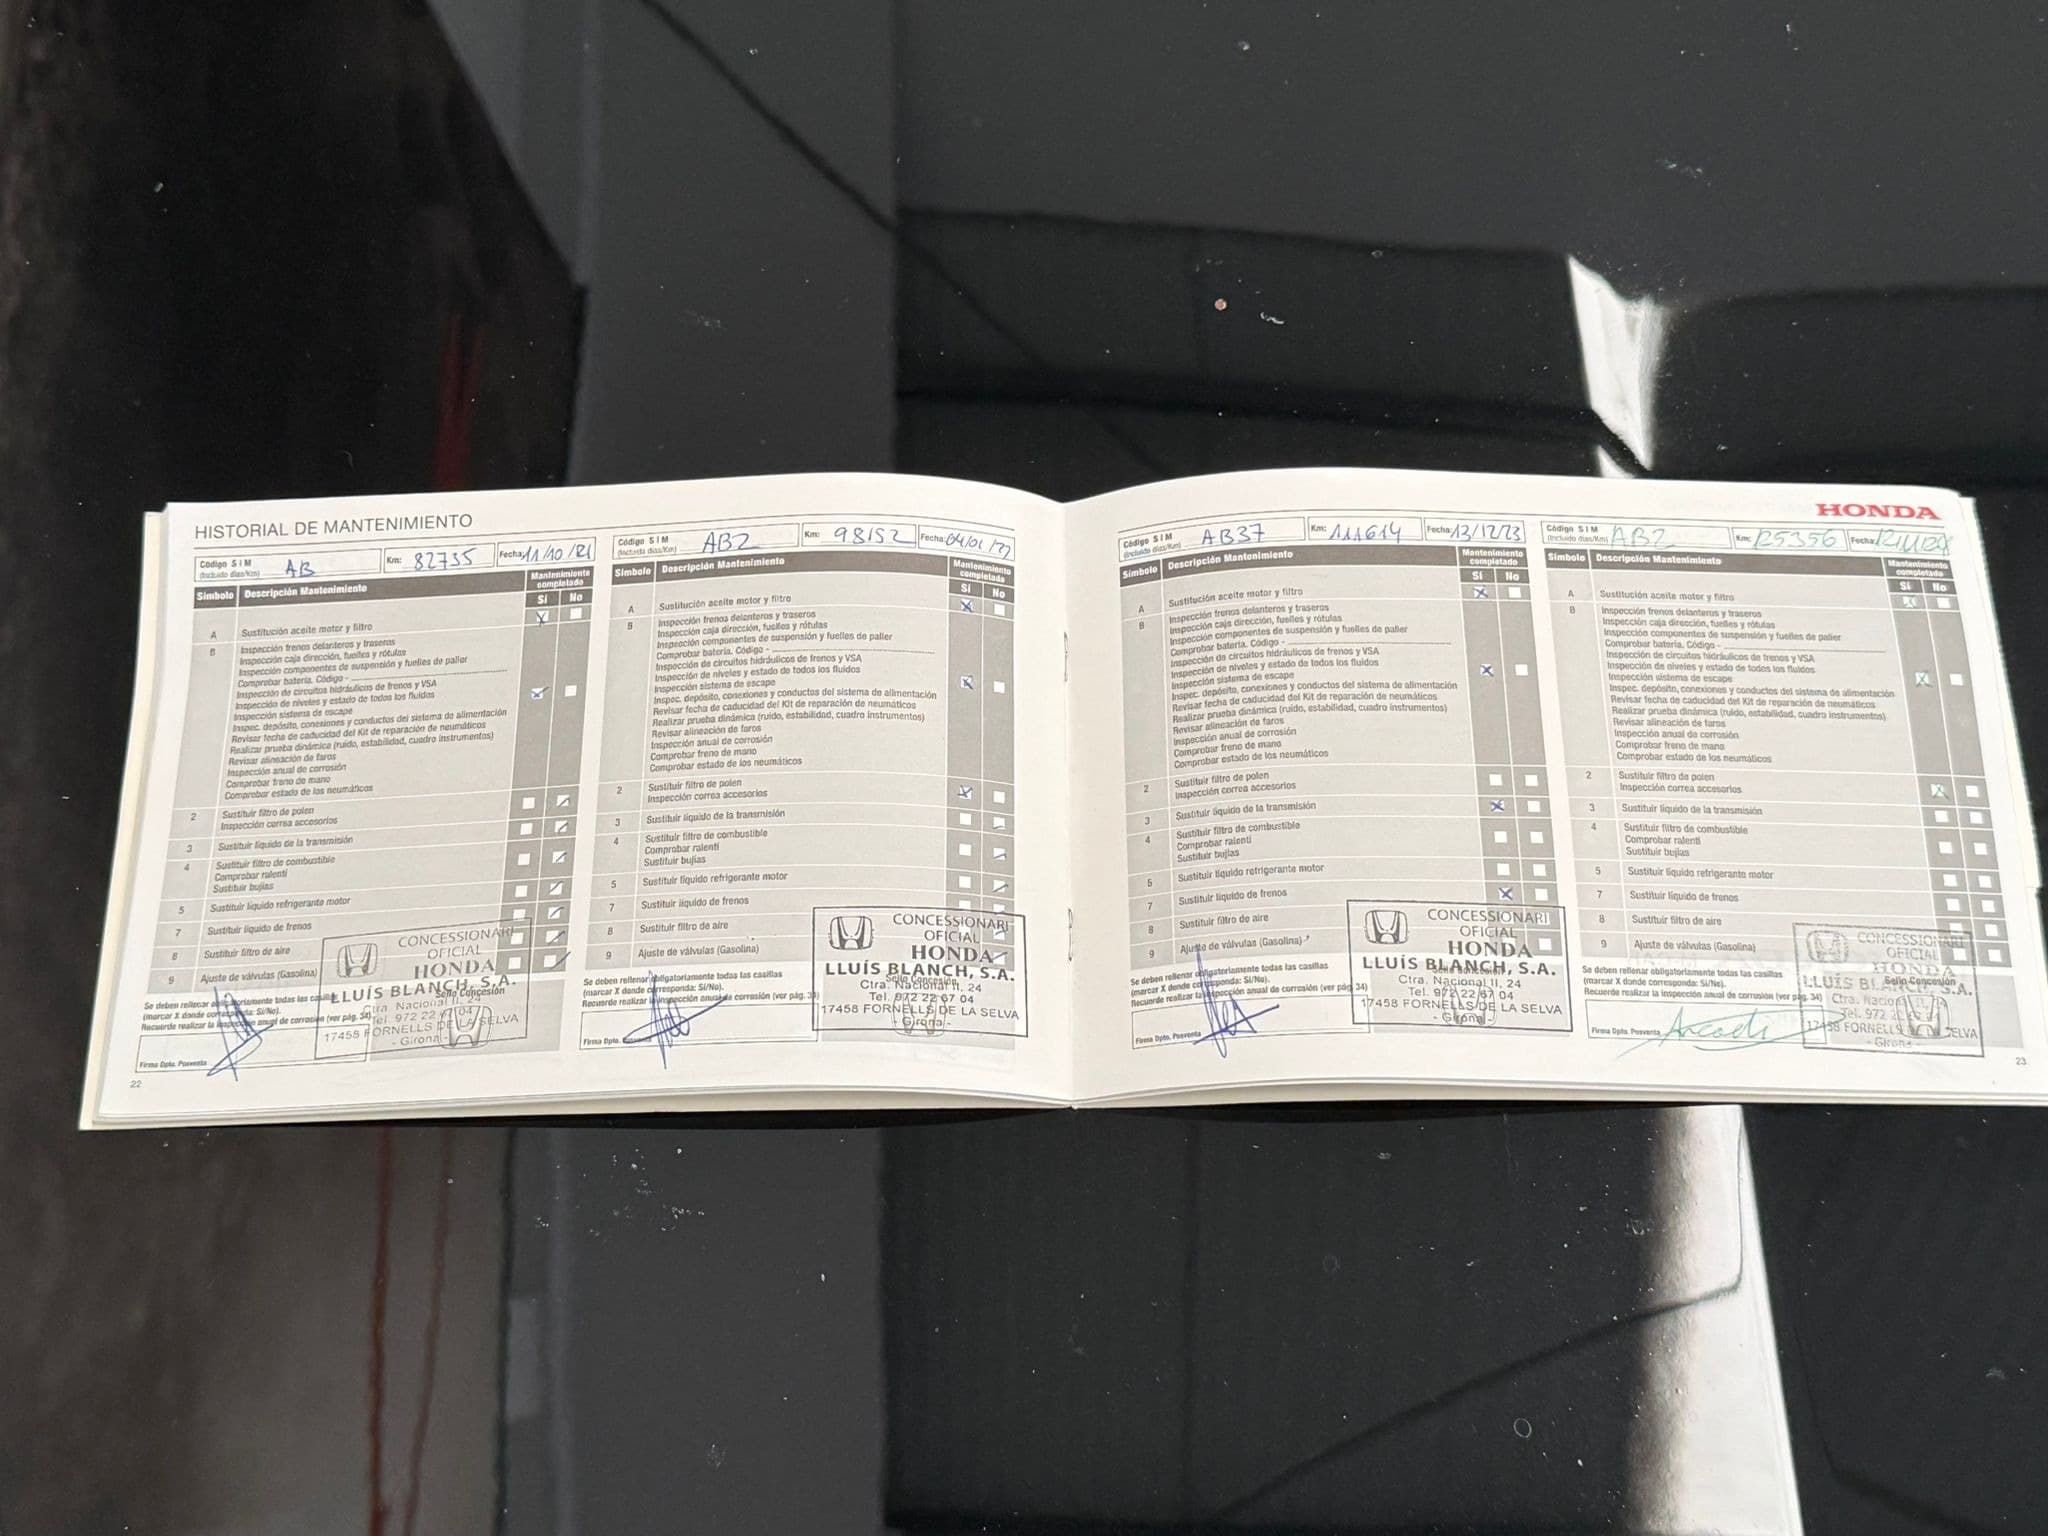 HISTORIAL DE MANTENIMIENTO
Código S I M
(Incluido días/Km) AB
Km: 82735
Fecha: 11/10/21
Símbolo Descripción Mantenimiento Mantenimiento completado
Sí No
A Sustitución aceite motor y filtro
B Inspección frenos delanteros y traseros
Inspección caja dirección, fuelles y rótulas
Inspección componentes de suspensión y fuelles de palier
Comprobar batería. Código -
Inspección de circuitos hidráulicos de frenos y VSA
Inspección de niveles y estado de todos los fluidos
Inspección sistema de escape
Inspec. depósito, conexiones y conductos del sistema de alimentación
Revisar fecha de caducidad del Kit de reparación de neumáticos
Realizar prueba dinámica (ruido, estabilidad, cuadro instrumentos)
Revisar alineación de faros
Inspección anual de corrosión
Comprobar freno de mano
Comprobar estado de los neumáticos
2 Sustituir filtro de polen
Inspección correa accesorios
3 Sustituir líquido de la transmisión
4 Sustituir filtro de combustible
Comprobar ralentí
Sustituir bujías
5 Sustituir líquido refrigerante motor
7 Sustituir líquido de frenos
8 Sustituir filtro de aire
9 Ajuste de válvulas (Gasolina)
Se deben rellenar obligatoriamente todas las casillas
(marcar X donde corresponda: Sí/No).
Recuerde realizar la inspección anual de corrosión (ver pág. 34)
Sello Concesión
Firma Dpto. Posventa
CONCESSIONARI
OFICIAL
HONDA
LLUÍS BLANCH, S.A.
Ctra. Nacional II, 24
Tel. 972 22 67 04
17458 FORNELLS DE LA SELVA
- Girona -
22
Código S I M
(Incluido días/Km) AB2
Km: 98152
Fecha: 04/01/
Símbolo Descripción Mantenimiento Mantenimiento completado
Sí No
A Sustitución aceite motor y filtro
B Inspección frenos delanteros y traseros
Inspección caja dirección, fuelles y rótulas
Inspección componentes de suspensión y fuelles de palier
Comprobar batería. Código -
Inspección de circuitos hidráulicos de frenos y VSA
Inspección de niveles y estado de todos los fluidos
Inspección sistema de escape
Inspec. depósito, conexiones y conductos del sistema de alimentación
Revisar fecha de caducidad del Kit de reparación de neumáticos
Realizar prueba dinámica (ruido, estabilidad, cuadro instrumentos)
Revisar alineación de faros
Inspección anual de corrosión
Comprobar freno de mano
Comprobar estado de los neumáticos
2 Sustituir filtro de polen
Inspección correa accesorios
3 Sustituir líquido de la transmisión
4 Sustituir filtro de combustible
Comprobar ralentí
Sustituir bujías
5 Sustituir líquido refrigerante motor
7 Sustituir líquido de frenos
8 Sustituir filtro de aire
9 Ajuste de válvulas (Gasolina)
Se deben rellenar obligatoriamente todas las casillas
(marcar X donde corresponda: Sí/No).
Recuerde realizar la inspección anual de corrosión (ver pág. 34)
Sello Concesión
Firma Dpto. Posventa
CONCESSIONARI
OFICIAL
HONDA
LLUÍS BLANCH, S.A.
Ctra. Nacional II, 24
Tel. 972 22 67 04
17458 FORNELLS DE LA SELVA
- Girona -
HONDA
Código S I M
(Incluido días/Km) AB37
Km: 111614
Fecha: 13/12/23
Símbolo Descripción Mantenimiento Mantenimiento completado
Sí No
A Sustitución aceite motor y filtro
B Inspección frenos delanteros y traseros
Inspección caja dirección, fuelles y rótulas
Inspección componentes de suspensión y fuelles de palier
Comprobar batería. Código -
Inspección de circuitos hidráulicos de frenos y VSA
Inspección de niveles y estado de todos los fluidos
Inspección sistema de escape
Inspec. depósito, conexiones y conductos del sistema de alimentación
Revisar fecha de caducidad del Kit de reparación de neumáticos
Realizar prueba dinámica (ruido, estabilidad, cuadro instrumentos)
Revisar alineación de faros
Inspección anual de corrosión
Comprobar freno de mano
Comprobar estado de los neumáticos
2 Sustituir filtro de polen
Inspección correa accesorios
3 Sustituir líquido de la transmisión
4 Sustituir filtro de combustible
Comprobar ralentí
Sustituir bujías
5 Sustituir líquido refrigerante motor
7 Sustituir líquido de frenos
8 Sustituir filtro de aire
9 Ajuste de válvulas (Gasolina)
Se deben rellenar obligatoriamente todas las casillas
(marcar X donde corresponda: Sí/No).
Recuerde realizar la inspección anual de corrosión (ver pág. 34)
Sello Concesión
Firma Dpto. Posventa
CONCESSIONARI
OFICIAL
HONDA
LLUÍS BLANCH, S.A.
Ctra. Nacional II, 24
Tel. 972 22 67 04
17458 FORNELLS DE LA SELVA
- Girona -
Código S I M
(Incluido días/Km) AB2
Km: 125356
Fecha:
Símbolo Descripción Mantenimiento Mantenimiento completado
Sí No
A Sustitución aceite motor y filtro
B Inspección frenos delanteros y traseros
Inspección caja dirección, fuelles y rótulas
Inspección componentes de suspensión y fuelles de palier
Comprobar batería. Código -
Inspección de circuitos hidráulicos de frenos y VSA
Inspección de niveles y estado de todos los fluidos
Inspección sistema de escape
Inspec. depósito, conexiones y conductos del sistema de alimentación
Revisar fecha de caducidad del Kit de reparación de neumáticos
Realizar prueba dinámica (ruido, estabilidad, cuadro instrumentos)
Revisar alineación de faros
Inspección anual de corrosión
Comprobar freno de mano
Comprobar estado de los neumáticos
2 Sustituir filtro de polen
Inspección correa accesorios
3 Sustituir líquido de la transmisión
4 Sustituir filtro de combustible
Comprobar ralentí
Sustituir bujías
5 Sustituir líquido refrigerante motor
7 Sustituir líquido de frenos
8 Sustituir filtro de aire
9 Ajuste de válvulas (Gasolina)
Se deben rellenar obligatoriamente todas las casillas
(marcar X donde corresponda: Sí/No).
Recuerde realizar la inspección anual de corrosión (ver pág. 34)
Sello Concesión
Firma Dpto. Posventa
CONCESSIONARI
OFICIAL
HONDA
LLUÍS BLANCH, S.A.
Ctra. Nacional II, 24
Tel. 972 22 67 04
17458 FORNELLS DE LA SELVA
- Girona -
23